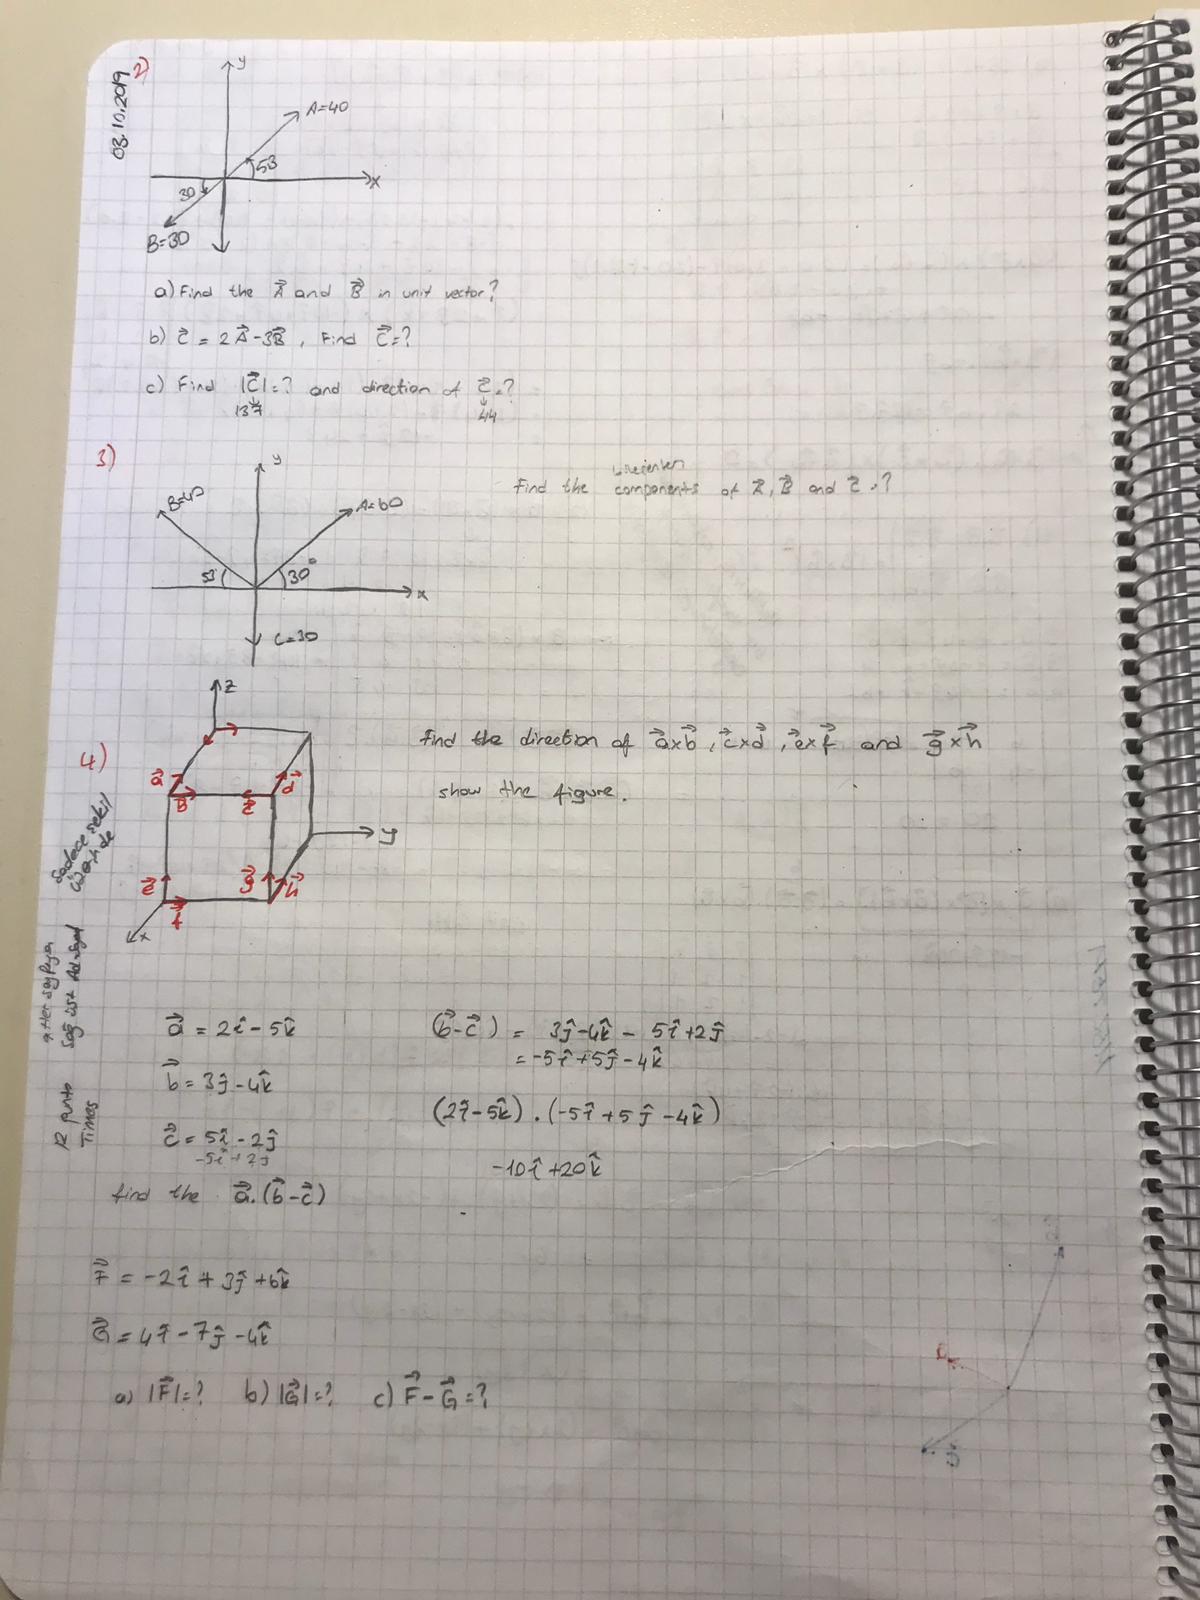 03.10.2019
2)
y
A=40
53
x
30
B=30
a) Find the A⃗ and B⃗ in unit vector?
b) C⃗ = 2A⃗-3B⃗, Find C⃗=?
c) Find |C⃗|=? and direction of C⃗=?
137
44
3)
y
B=40
A=60
53
30°
x
C=30
bileşenleri
Find the components of A⃗, B⃗ and C⃗=?
4)
z
a⃗
b⃗
c⃗
d⃗
y
e⃗
f⃗
g⃗
h⃗
x
Find the direction of a⃗xb⃗, c⃗xd⃗, e⃗xf⃗ and g⃗xh⃗
show the figure.
Sadece şekil
üzerinde
*Her sayfaya
sağ üst Ad-Soyad
12 punto
Times
a⃗ = 2î-5k̂
b⃗ = 3ĵ-4k̂
c⃗ = 5î-2ĵ
-5î+2ĵ
find the a⃗.(b⃗-c⃗)
(b⃗-c⃗) = 3ĵ-4k̂ - 5î+2ĵ
= -5î+5ĵ-4k̂
(2î-5k̂).(-5î+5ĵ-4k̂)
-10î+20k̂
F⃗ = -2î+3ĵ+6k̂
G⃗ = 4î-7ĵ-4k̂
a) |F⃗|=? b) |G⃗|=? c) F⃗-G⃗=?